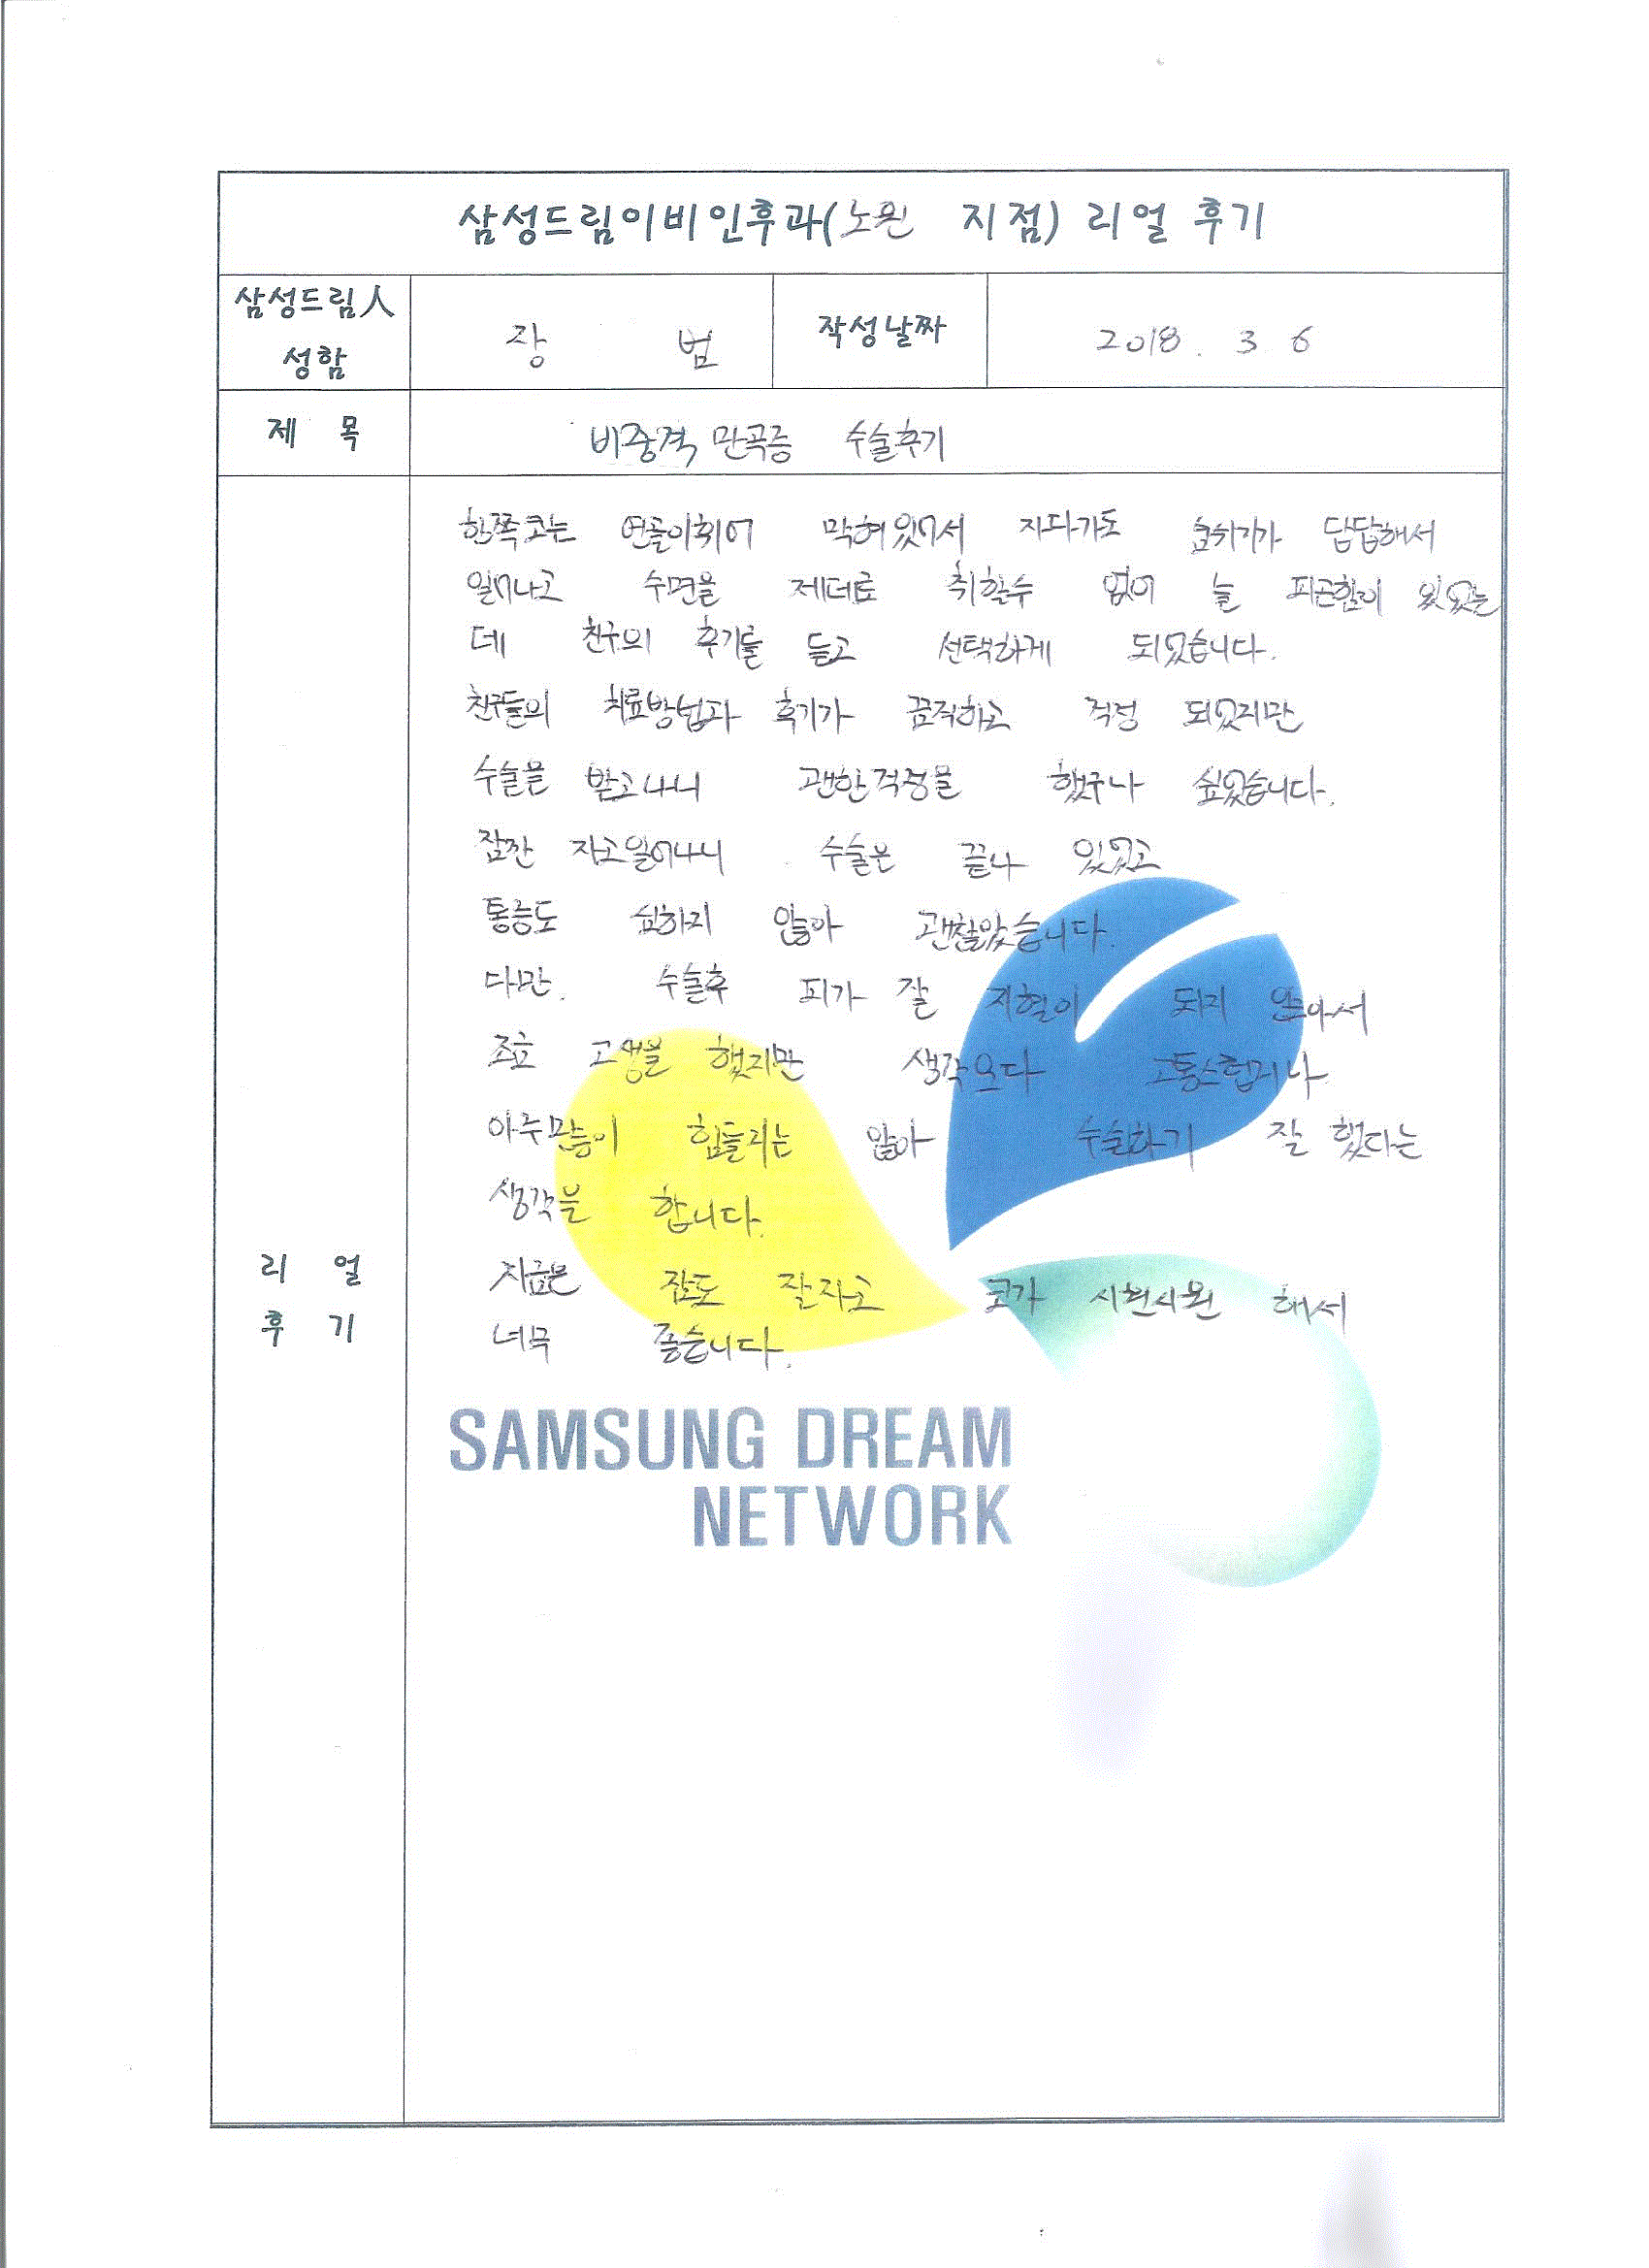 삼성드림이비인후과(노원 지점) 리얼 후기
삼성드림人
성함
장 범
작성날짜
2018. 3 6
제 목
비중격 만곡증 수술후기
한쪽코는 연골이휘어 막혀있어서 자다가도 숨쉬기가 답답해서
일어나고 수면을 제데로 취할수 없어 늘 피곤함이 있었는
데 친구의 후기를 듣고 선택하게 되었습니다.
친구들의 치료방법과 후기가 끔직하고 걱정 되었지만
수술을 받고나니 괜한걱정을 했구나 싶었습니다.
잠깐 자고일어나니 수술은 끝나 있었고
통증도 심하지 않아 괜찮았습니다.
다만. 수술후 피가 잘 지혈이 되지 않아서
조금 고생을 했지만 생각보다 고통스럽거나
아주많이 힘들지는 않아 수술하기 잘 했다는
생각을 합니다.
지금은 잠도 잘자고 코가 시원시원 해서
너무 좋습니다.
리 얼
후 기
SAMSUNG DREAM
NETWORK